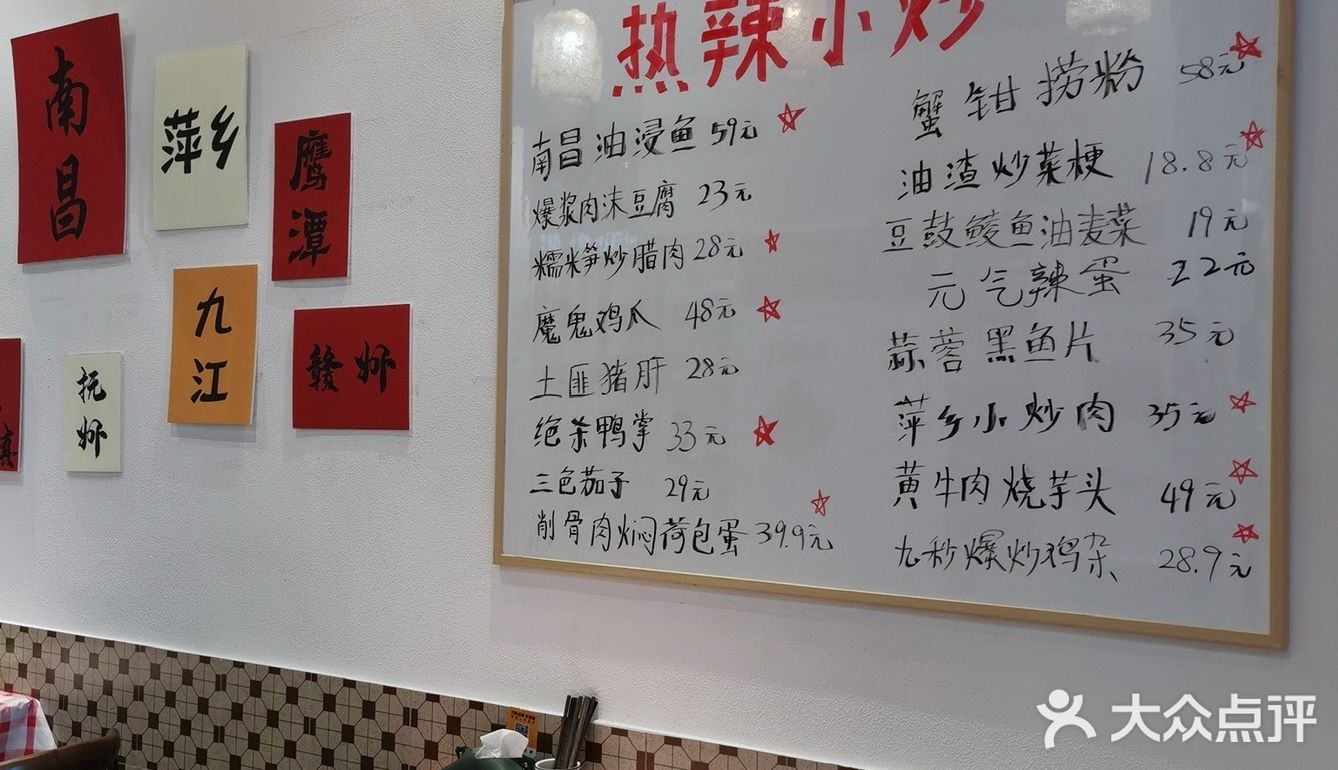 南昌
萍乡
鹰潭
九江
赣州
抚州
热辣小炒
南昌油浸鱼59元
爆浆肉沫豆腐 23元
糯米笋炒腊肉28元
魔鬼鸡爪 48元
土匪猪肝 28元
绝杀鸭掌 33元
三色茄子 29元
削骨肉焖荷包蛋39.9元
蟹钳捞粉 58元
油渣炒菜梗 18.8元
豆鼓鲮鱼油麦菜 19元
元气辣蛋 22元
蒜蓉黑鱼片 35元
萍乡小炒肉 35元
黄牛肉烧芋头 49元
九秒爆炒鸡杂 28.9元
大众点评